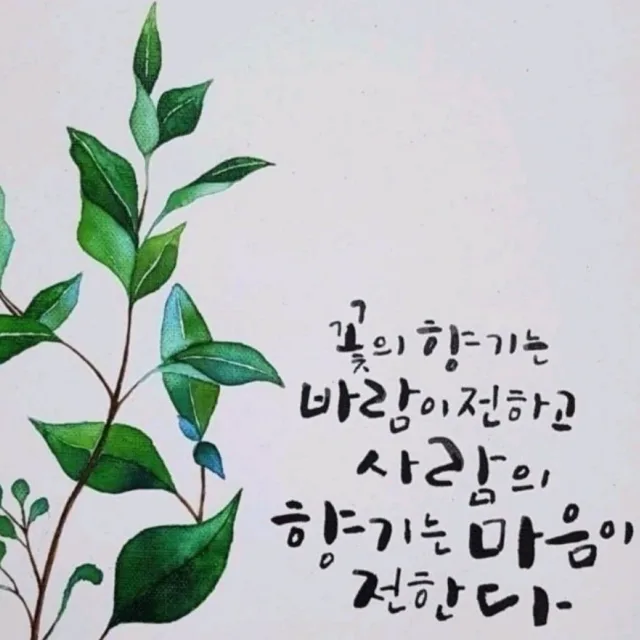 꽃의 향기는
바람이 전하고
사람의
향기는 마음이
전한다